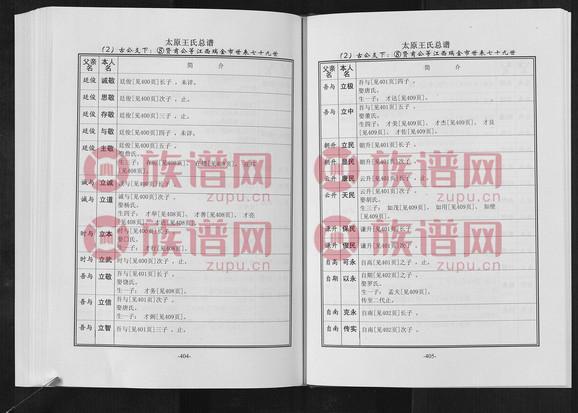 太原王氏总谱
(2) 古公天下：⑧贤甫公等江西瑞金市世系七十九世
父亲名 本人名 简介
廷俊 诚敬 廷俊[见400页]长子，未详。
廷俊 思敬 廷俊[见400页]次子，止。
廷俊 存敬 廷俊[见400页]三子，止。
廷俊 与敬 廷俊[见400页]四子，未详。
廷俊 主敬 廷俊[见400页]五子，
见408页]。
诚与 立诚
诚与 立道
娶杨氏，
生四子：
时与 立本
生一子：
时与 立武
吾与 立敬 吾与[见401页]长子，
娶饶氏，
生一子：才务[见408页]。
吾与 立信 吾与[见401页]次子，
娶秦氏，
生一子：才炯[见409页]。
吾与 立智 吾与[见401页]三子，止。
-404-
太原王氏总谱
(2) 古公天下：⑧贤甫公等江西瑞金市世系七十九世
父亲名 本人名 简介
吾与 立极 吾与[见401页]四子，
娶唐氏，
生一子：才达[见409页]。
吾与 立中 吾与[见401页]五子，
娶董氏，
生四子：才美[见409页]，才杰[见409页]，才良
[见409页]，才佐[见409页]。
朝升 立民 朝升[见401页]长子，
朝升 显民 朝升[见401页]次子，
云升 康民 云升[见401页]长子，止。
云升 天民 云升[见401页]次子，
娶胡氏，
生三子：如茂[见409页]，如用[见409页]，如便
[见409页]。
谦升 保民 谦升[见401页]长子，
谦升 俊民 谦升[见401页]次子，
自高 可永 自高[见401页]之子，止。
自期 以永 自期[见402页]之子，
娶罗氏，
生一子：孟夫[见409页]，
传至二代止。
自南 克永 自南[见402页]长子，
自南 传实 自南[见402页]次子，
-405-
族谱网
zupu.cn
族谱网
zupu.cn
族谱网
zupu.cn
族谱网
zupu.cn